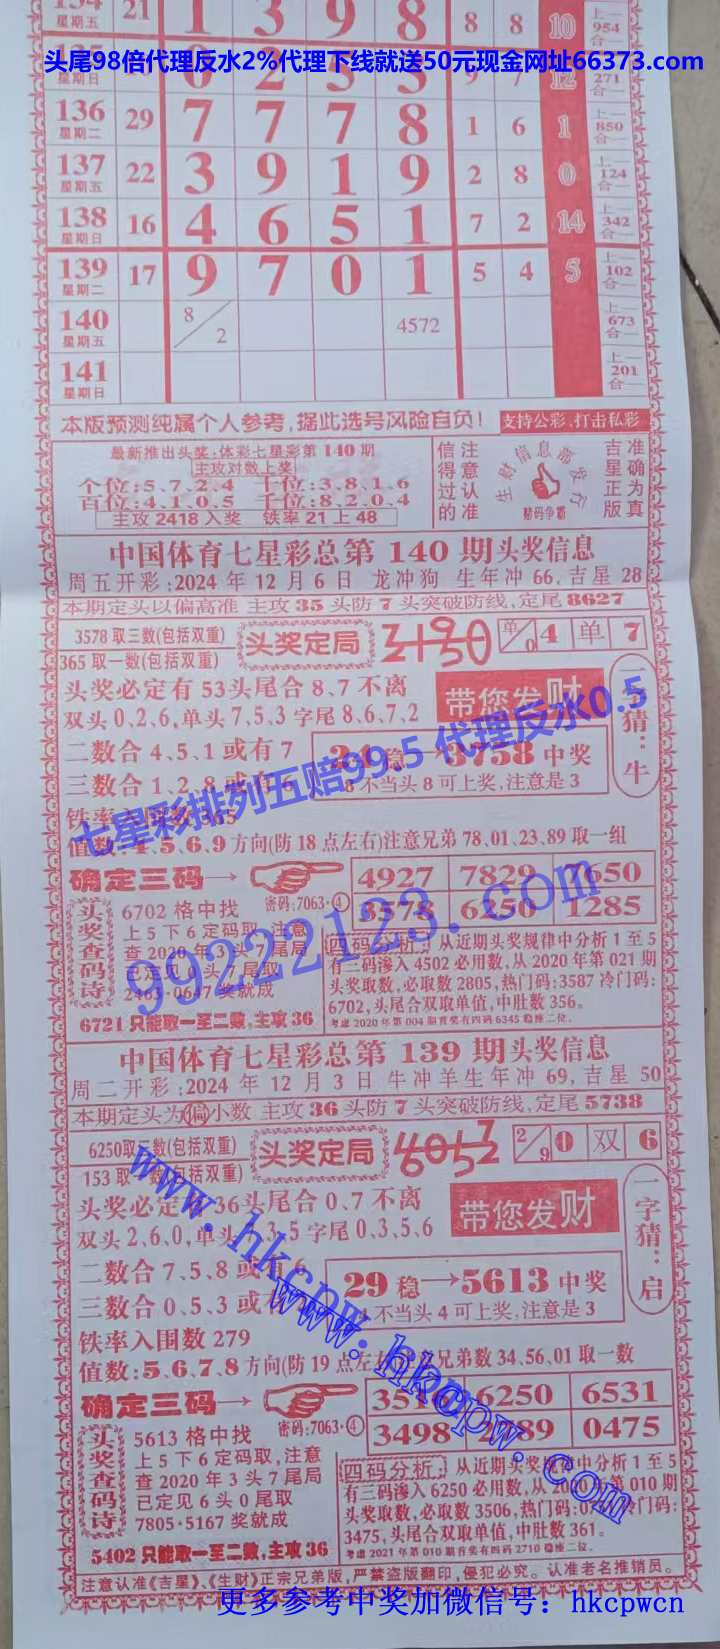 21 1 3 9 8 8 8 10 上一 954 合一
头尾98倍代理反水2%代理下线就送50元现金网址66373.com
271 合一
136 星期二 29 7 7 7 8 1 6 1 上一 850 合一
137 星期五 22 3 9 1 9 2 8 0 上一 124 合一
138 星期日 16 4 6 5 1 7 2 14 上一 342 合一
139 星期二 17 9 7 0 1 5 4 5 上一 102 合一
140 星期五 8/2 4572 上一 673 合一
141 星期日 上一 201 合一
本版预测纯属个人参考,据此选号风险自负! 支持公彩,打击私彩
最新推出头奖:体彩七星彩第140期
主攻对数上奖
个位:5,7,2,4 十位:3,8,1,6
百位:4,1,0,5 千位:8,2,0,4
主攻2418入奖 铁率21上48
信得过的 注意认准
生财信息部发行
吉星正版 准确为真
中国体育七星彩总第140期头奖信息
周五开彩:2024年12月6日 龙冲狗 生年冲66,吉星28
本期定头以偏高准 主攻35头防7头突破防线,定尾8627
3578取三数(包括双重)
365取一数(包括双重)
头奖定局
单/0 4 单 7
头奖必定有53头尾合8,7不离
双头0,2,6,单头7,5,3字尾8,6,7,2
带您发财
一字猜:牛
二数合4,5,1或有7
三数合1,2,8或有6
稳→3758中奖
8不当头8可上奖,注意是3
七星彩排列五赔99.5 代理反水0.5
值数:4、5,6,9方向(防18点左右)注意兄弟78,01,23,89取一组
确定三码→
密码:7063·④
4927 7829 7650
3578 6250 1285
头奖查码诗
6702格中找
上5下6定码取,注意
查2020年3头7尾局
已定见6头7尾取
2463·0647奖就成
6721只能取一至二数,主攻36
四码分析:从近期头奖规律中分析1至5
有三码渗入4502必用数,从2020年第021期
头奖取数,必取数2805,热门码:3587冷门码:
6702,头尾合双取单值,中肚数356。
考虑2020年第004期首奖有四码6345稳座二位。
99222123.com
中国体育七星彩总第139期头奖信息
周二开彩:2024年12月3日 牛冲羊生年冲69,吉星50
本期定头为偏小数 主攻36头防7头突破防线,定尾5738
6250取三数(包括双重)
153取一数(包括双重)
头奖定局
2/9 0 双 6
头奖必定有36头尾合0,7不离
双头2,6,0,单头1,3,5字尾0,3,5,6
带您发财
一字猜:启
二数合7,5,8或有6
三数合0,5,3或有
29稳→5613中奖
不当头4可上奖,注意是3
铁率入围数279
值数:5、6,7,8方向(防19点左右)注意兄弟数34,56,01取一数
确定三码→
密码:7063·④
3516 6250 6531
3498 2789 0475
头奖查码诗
5613格中找
上5下6定码取,注意
查2020年3头7尾局
已定见6头0尾取
7805·5167奖就成
5402只能取一至二数,主攻36
四码分析:从近期头奖规律中分析1至5
有三码渗入6250必用数,从2020年第010期
头奖取数,必取数3506,热门码:冷门码:
3475,头尾合双取单值,中肚数361。
考虑2021年第010期首奖有四码2710稳座二位。
www.hkcpw.com
www.hkcpw.com
注意认准《吉星》、《生财》正宗兄弟版,严禁盗版翻印,侵犯必究。认准老名推销员。
更多参考中奖加微信号:hkcpwcn